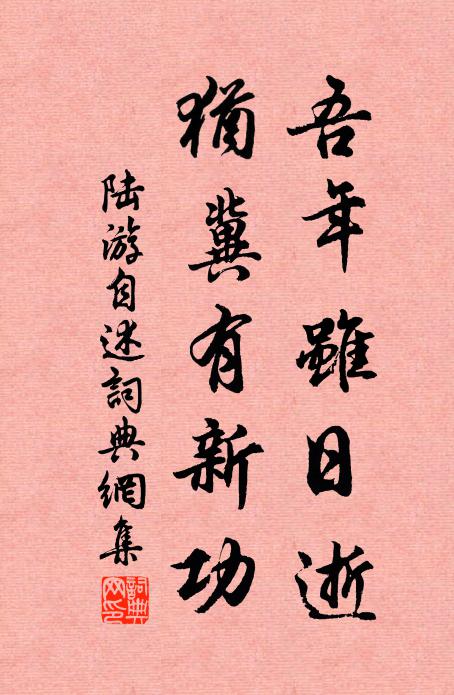 吾年雖日逝
猶冀有新功
陆游自述詞典網集
詞典網印